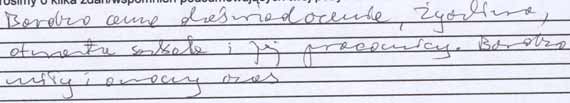 rosimy o kilka zdań/wspomnień podsumowujących
Bardzo cenne doświadczenie, życzliwa,
otwarta szkoła i jej pracownicy. Bardzo
miły i owocny czas